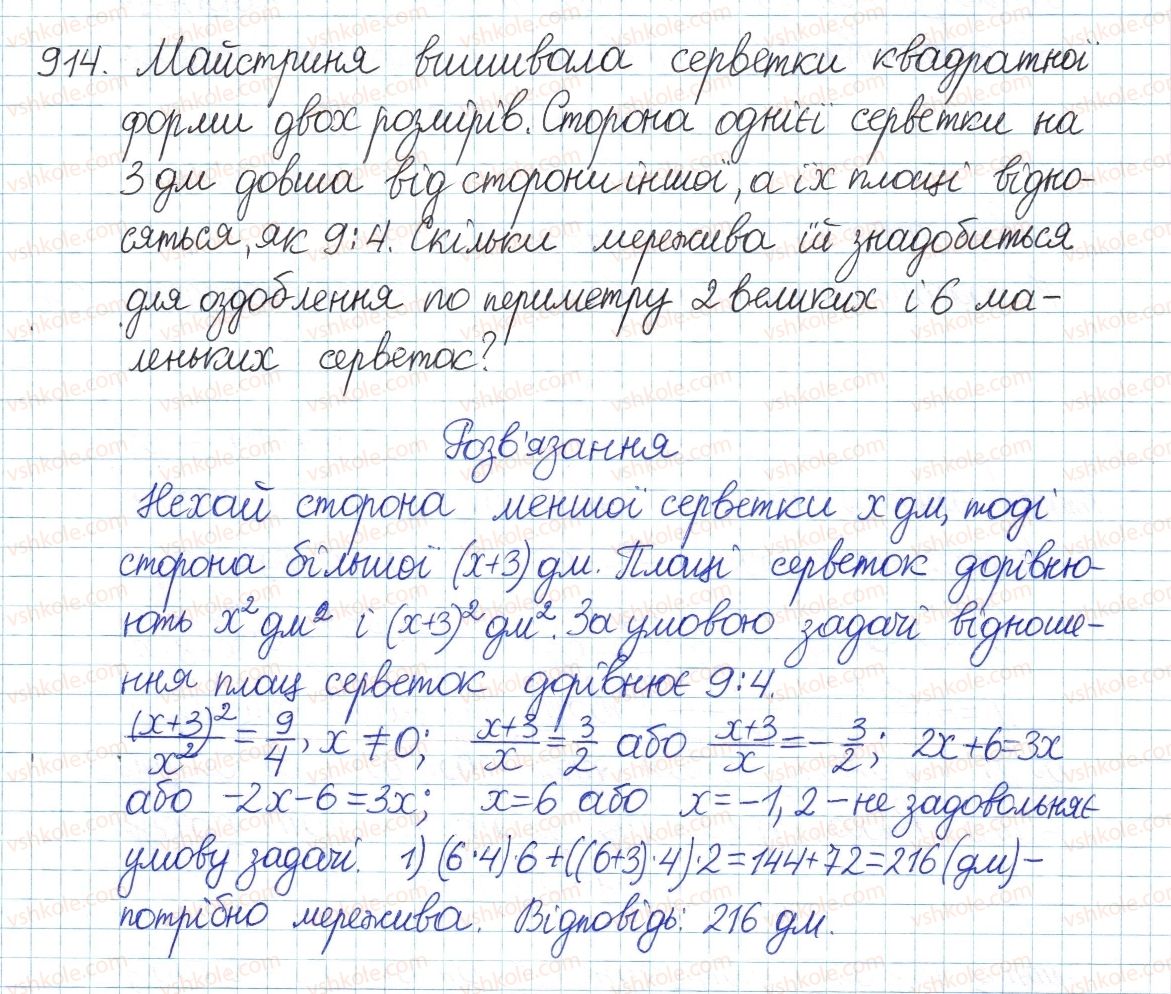 914. Майстриня вишивала серветки квадратної
форми двох розмірів. Сторона однієї серветки на
3 дм довша від сторони іншої, а їх площі відно-
сяться, як 9:4. Скільки мережива їй знадобиться
для оздоблення по периметру 2 великих і 6 ма-
леньких серветок?
Розв'язання
Нехай сторона меншої серветки x дм, тоді
сторона більшої (x+3) дм. Площі серветок дорівню-
ють x² дм² і (x+3)² дм². За умовою задачі відноше-
ння площ серветок дорівнює 9:4.
(x+3)²/x² = 9/4, x ≠ 0; (x+3)/x = 3/2 або (x+3)/x = -3/2; 2x+6=3x
або -2x-6=3x; x=6 або x=-1,2 - не задовольняє
умову задачі. 1) (6·4)·6+((6+3)·4)·2=144+72=216 (дм) -
потрібно мережива. Відповідь: 216 дм.